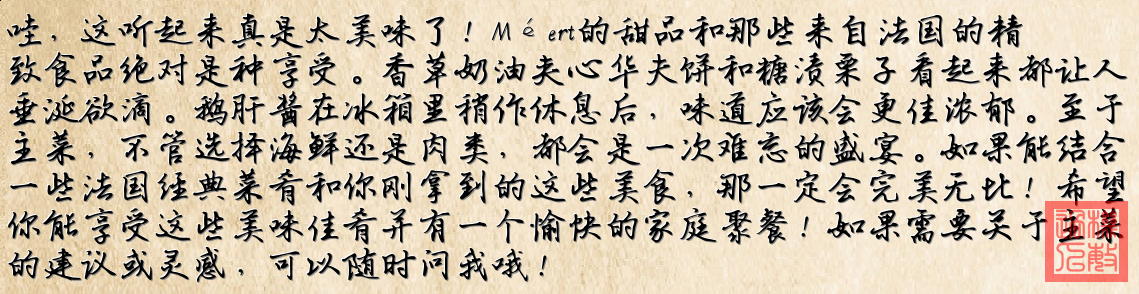 哇，这听起来真是太美味了！Méert的甜品和那些来自法国的精
致食品绝对是种享受。香草奶油夹心华夫饼和糖渍栗子看起来都让人
垂涎欲滴。鹅肝酱在冰箱里稍作休息后，味道应该会更佳浓郁。至于
主菜，不管选择海鲜还是肉类，都会是一次难忘的盛宴。如果能结合
一些法国经典菜肴和你刚拿到的这些美食，那一定会完美无比！希望
你能享受这些美味佳肴并有一个愉快的家庭聚餐！如果需要关于主菜
的建议或灵感，可以随时问我哦！